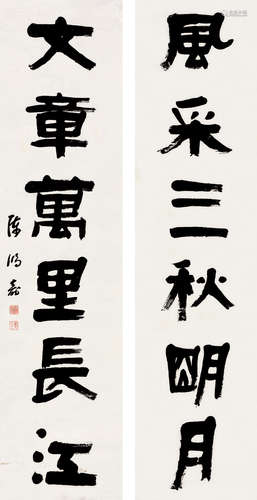 風采三秋明月
文章萬里長江
陳鴻壽